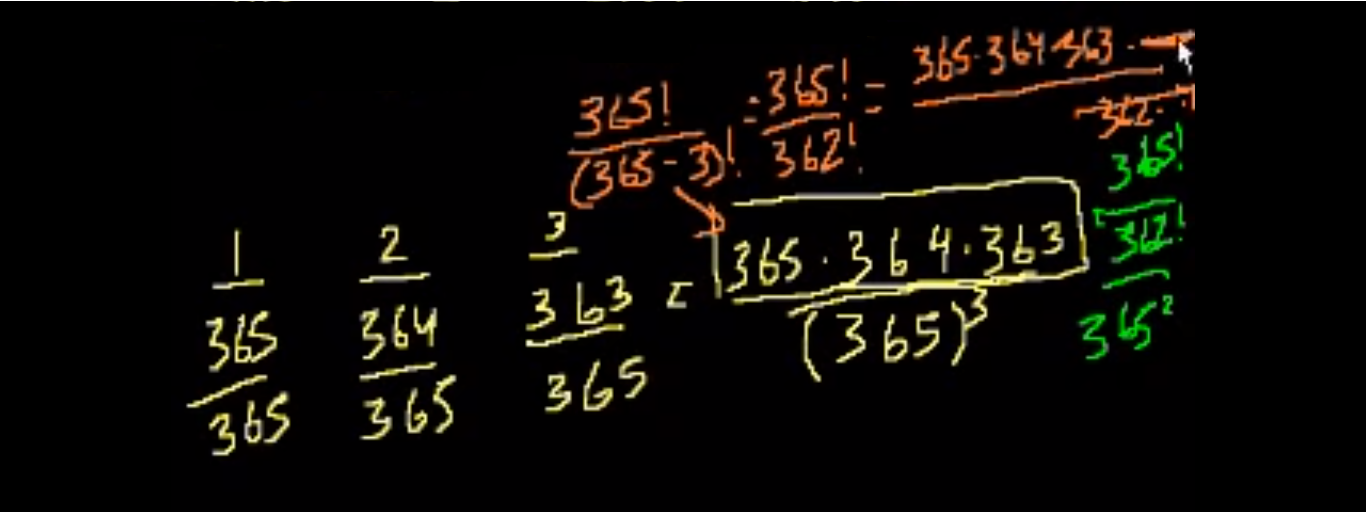 365! / (365 - 3)! = 365! / 362! = 365 · 364 · 363 · / 362 ·
1 2 3
365/365 364/365 363/365 = 365 · 364 · 363 / (365)³
365! / 362! / 365²